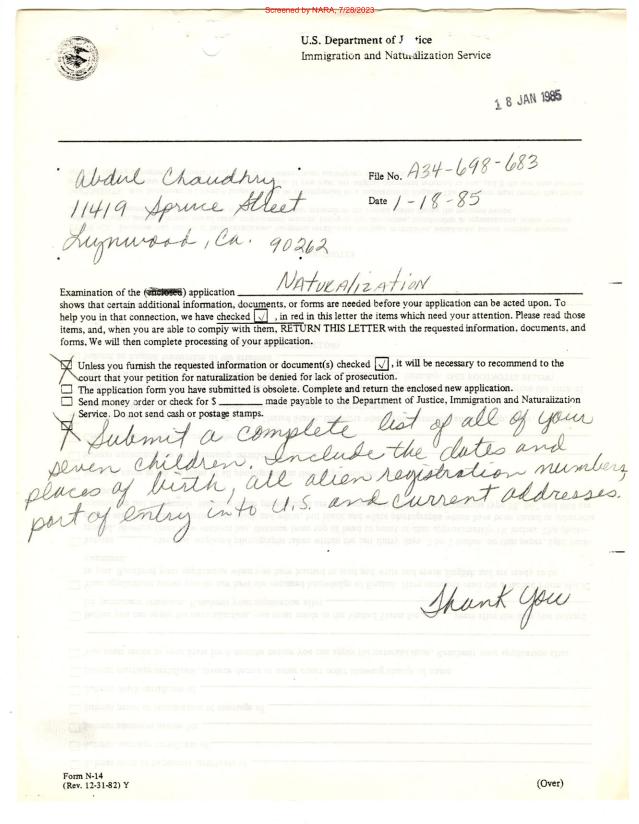 Screened by NARA, 7/28/2023
U.S. Department of Justice
Immigration and Naturalization Service
18 JAN 1985
Abdul Chaudhry
11419 Spruce Street
Lynwood, Ca. 90262
File No. A34-698-683
Date 1-18-85
Examination of the (enclosed) application Naturalization
shows that certain additional information, documents, or forms are needed before your application can be acted upon. To
help you in that connection, we have checked ☑, in red in this letter the items which need your attention. Please read those
items, and, when you are able to comply with them, RETURN THIS LETTER with the requested information, documents, and
forms, We will then complete processing of your application.
☑ Unless you furnish the requested information or document(s) checked ☑, it will be necessary to recommend to the
court that your petition for naturalization be denied for lack of prosecution.
☐ The application form you have submitted is obsolete. Complete and return the enclosed new application.
☐ Send money order or check for $ ______ made payable to the Department of Justice, Immigration and Naturalization
Service. Do not send cash or postage stamps.
☑ Submit a complete list of all of your
seven children. Include the dates and
places of birth, all alien registration numbers,
port of entry into U.S. and current addresses.
Thank You
Form N-14
(Rev. 12-31-82) Y
(Over)